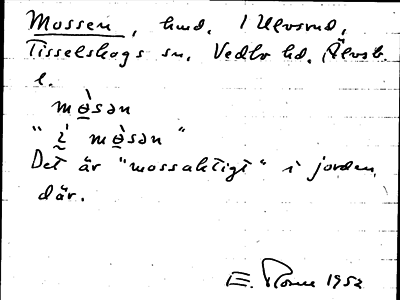 Mossen, hmd. i Ulvsrud,
Tisselskogs sn. Vedbo hd. Älvsb.
l.
mə̀sən
"i mə̀sən"
Det är "mossaktigt" i jorden
där.
E. 1952